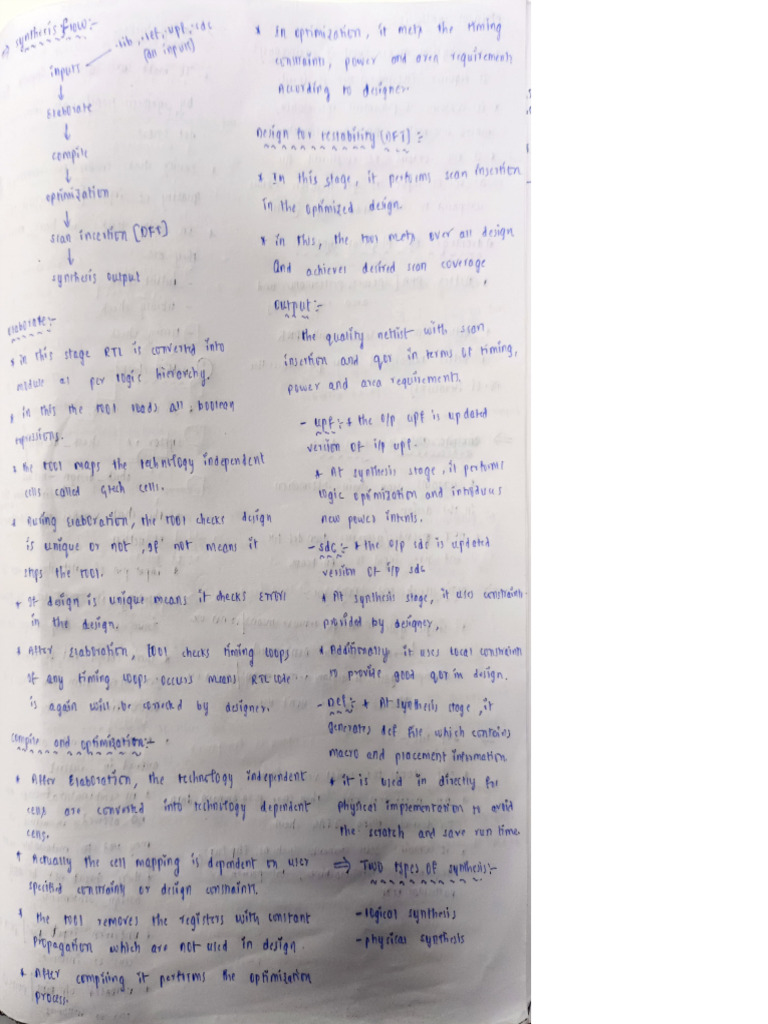 => synthesis flow:-
inputs
.lib, .lef, .upf, .sdc
(an inputs)
↓
Elaborate
↓
compile
↓
optimization
↓
scan incertion [DFT]
↓
synthesis output
Elaborate:-
* in this stage RTL is converted into
module as per logic hierarchy.
* in this the tool reads all boolean
expressions.
* the tool maps the technology independent
cells called Gtech cells.
* During Elaboration, the tool checks design
is unique or not, if not means it
stops the tool.
* If design is unique means it checks errors
in the design.
* After Elaboration, tool checks timing loops
if any timing loops occurs means RTL code
is again will be corrected by designer.
compile and optimization:-
* After Elaboration, the technology independent
cells are converted into technology dependent
cells.
* Actually the cell mapping is dependent on user
specified constraints or design constraints.
* the tool removes the registers with constant
propagation which are not used in design.
* After compiling it performs the optimization
process.
* In optimization, it mets the timing
constraints, power and area requirements
According to designer.
Design for testability [DFT]:-
* In this stage, it performs scan insertion
in the optimized design.
* in this, the tool mets over all design
And achieves desired scan coverage
output:-
the quality netlist with scan
insertion and qor in terms of timing,
power and area requirements.
- upf:- * the o/p upf is updated
version of i/p upf.
* At synthesis stage, it performs
logic optimization and introduces
new power intents.
- sdc:- * the o/p sdc is updated
version of i/p sdc
* At synthesis stage, it uses constraints
provided by designer,
* Additionally it uses local constraints
to provide good qor in design.
- Def:- * At synthesis stage, it
generates def file which contains
macro and placement information
* it is used in directly for
physical implementation to avoid
the scratch and save run time.
=> Two types of synthesis:-
- logical synthesis
- physical synthesis